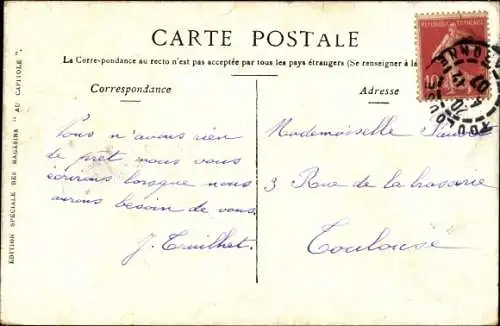 CARTE POSTALE
La Correspondance au recto n'est pas acceptée par tous les pays étrangers (Se renseigner à la
Correspondance
Adresse
Vous n'avons rien
de prêt nous vous
écrirons lorsque nous
aurons besoin de vous.
J. Truilhet
Mademoiselle
3 Rue de la brasserie
Toulouse
EDITION SPÉCIALE DES MAGASINS "AU CAPITOLE".
REPUBLIQUE FRANÇAISE
10
TOULOUSE
GARONNE